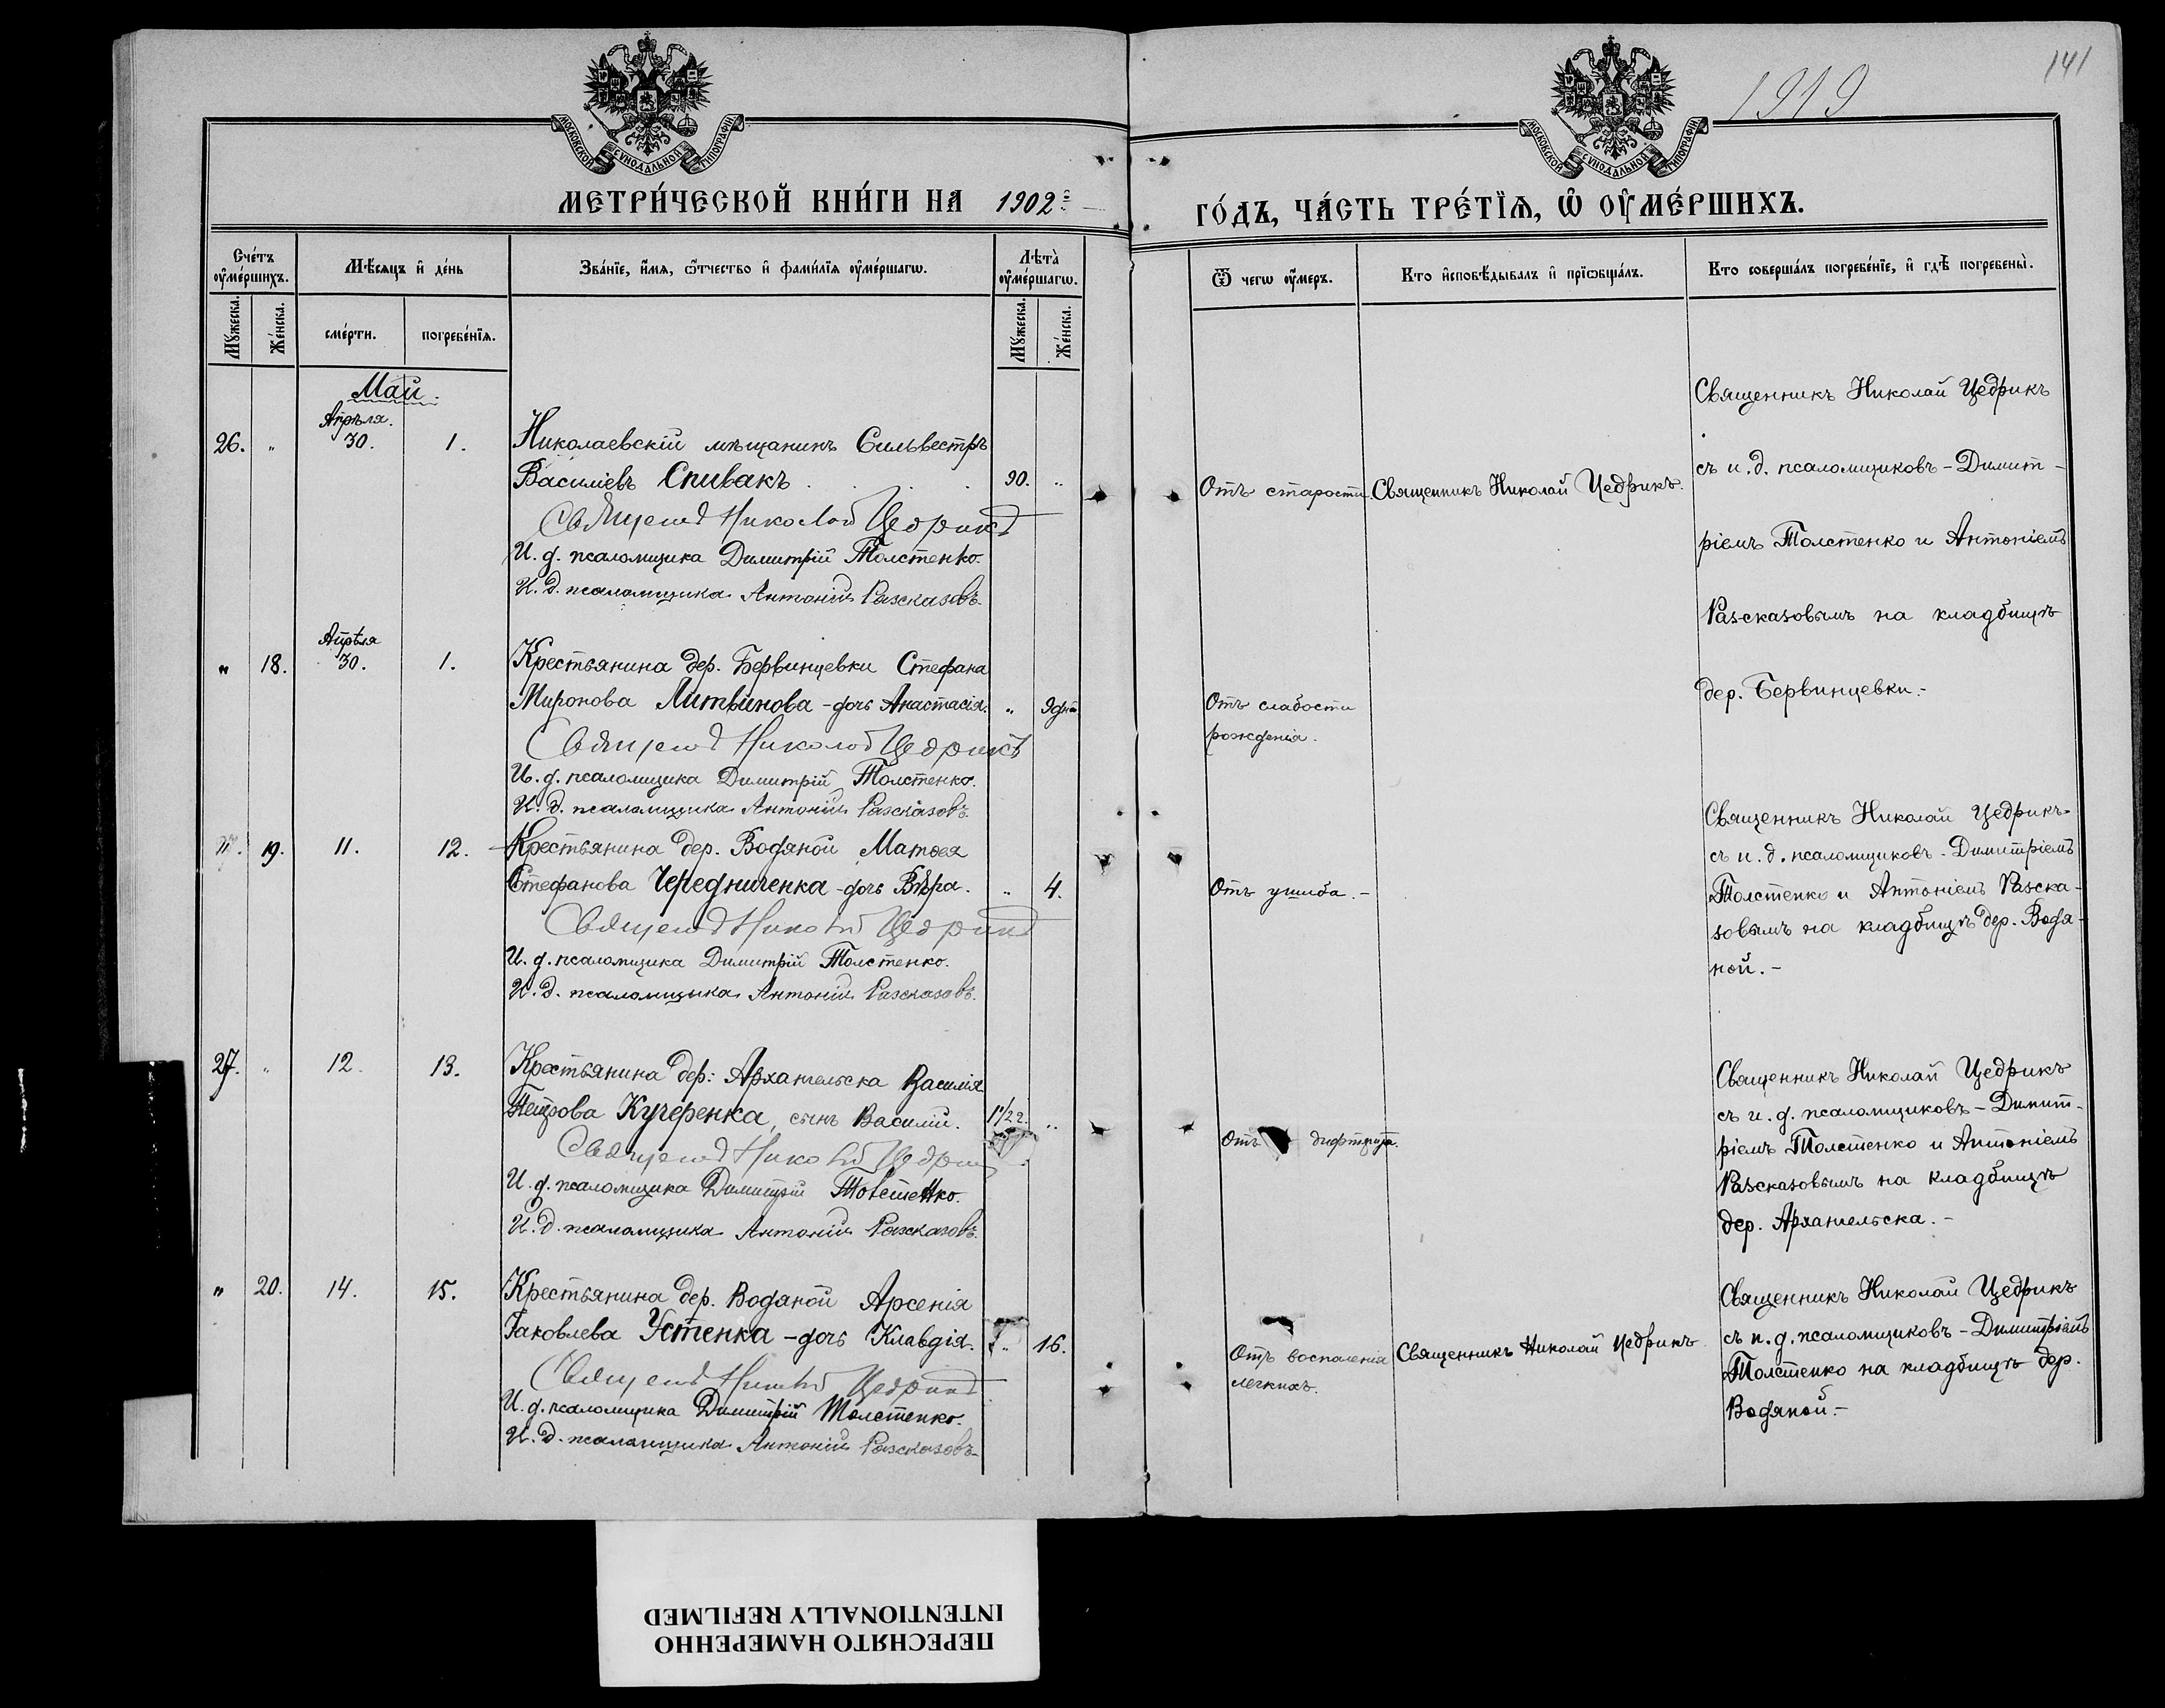 МОСКОВСКОЙ СѴНОДАЛЬНОЙ ТИПОГРАФІИ
МОСКОВСКОЙ СѴНОДАЛЬНОЙ ТИПОГРАФІИ
1919
141
МЕТРИ́ЧЕСКОЙ КНИ́ГИ НА 1902 г.
ГО́ДЪ, ЧА́СТЬ ТРЕ́ТЇѦ, Ѡ ОУМЕ́РШИХЪ.
Сче́тъ оуме́ршихъ.
Мѣсяцъ и де́нь
Зва́нїе, и́мя, ѻтчество и фами́лїя оуме́ршагѡ.
Лѣта̀ оуме́ршагѡ.
Ѿ чегѡ оу́меръ.
Кто исповѣ́дывалъ и прїѡбща́лъ.
Кто соверша́лъ погребе́нїе, и гдѣ̀ погребены̀.
Му́жеска.
Же́нска.
сме́рти.
погребе́нїя.
Му́жеска.
Же́нска.
Май.
Апрѣля.
26. " 30. 1. Николаевскій мѣщанинъ Сильвестръ
Василіевъ Спивакъ . . . 90. "
Священ Николай Цедрикъ
И. д. псаломщика Димитрій Толстенко.
И. д. псаломщика Антоній Разсказовъ.
Отъ старости. Священникъ Николай Цедрикъ.
Священникъ Николай Цедрикъ
съ и. д. псаломщиковъ - Димит-
ріемъ Толстенко и Антоніемъ
Разсказовымъ на кладбищѣ
дер. Бервинцевки. -
Апрѣля
" 18. 30. 1. Крестьянина дер. Бервинцевки Стефана
Миронова Литвинова - дочь Анастасія. " 9 дн.
Священ Николай Цедрикъ
И. д. псаломщика Димитрій Толстенко.
И. д. псаломщика Антоній Разсказовъ.
Отъ слабости
рожденія.
". 19. 11. 12. Крестьянина дер. Водяной Матѳея
Стефанова Чередниченка - дочь Вѣра. " 4.
Священ Николай Цедрикъ
И. д. псаломщика Димитрій Толстенко.
И. д. псаломщика Антоній Разсказовъ.
Отъ ушиба. -
Священникъ Николай Цедрикъ
съ и. д. псаломщиковъ - Димитріемъ
Толстенко и Антоніемъ Разска-
зовымъ на кладбищѣ дер. Водя-
ной. -
27. " 12. 13. Крестьянина дер. Архангельска Василія
Петрова Кучеренка, сынъ Василій. 1 1/2 г. "
Священ Николай Цедрикъ
И. д. псаломщика Димитрій Толстенко.
И. д. псаломщика Антоній Разсказовъ.
Отъ дифтерита.
Священникъ Николай Цедрикъ
съ и. д. псаломщиковъ - Димит-
ріемъ Толстенко и Антоніемъ
Разсказовымъ на кладбищѣ
дер. Архангельска. -
" 20. 14. 15. Крестьянина дер. Водяной Арсенія
Іаковлева Устенка - дочь Клавдія. " 16.
Священ Николай Цедрикъ
И. д. псаломщика Димитрій Толстенко.
И. д. псаломщика Антоній Разсказовъ.
Отъ воспаленія
легкихъ.
Священникъ Николай Цедрикъ
Священникъ Николай Цедрикъ
съ и. д. псаломщиковъ - Димитріемъ
Толстенко на кладбищѣ дер.
Водяной. -
ПЕРЕСНЯТО НАМЕРЕННО
INTENTIONALLY REFILMED